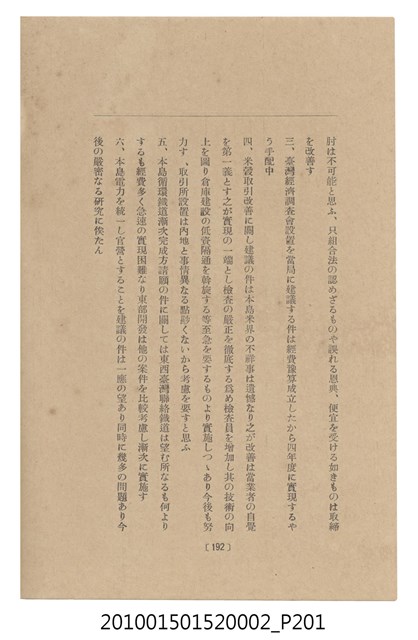 肘は不可能と思ふ、只組合法の認めざるものや誤れる恩典、便宜を受ける如きものは取締
を改善す
三、臺灣經濟調査會設置を當局に建議する件は經費豫算成立したから四年度に實現するや
う手配中
四、米穀取引改善に關し建議の件は本島米界の不祥事は遺憾なり之が改善は當業者の自覺
を第一義とす之が實現の一端とし檢查の嚴正を徹底する爲め檢查員を增加し其の技術の向
上を圖り倉庫建設の低資融通を斡旋する等至急を要するものより實施しつゝあり今後も努
力す、取引所設置は內地と事情異なる點尠くないから考慮を要すと思ふ
五、本島循環鐵道漸次完成方請願の件に關しては東西臺灣聯絡鐵道は望む所なるも何より
するも經費多く急速の實現困難なり東部開發は他の案件を比較考慮し漸次に實施す
六、本島電力を統一し官營とすることを建議の件は一應の望あり同時に幾多の問題あり今
後の嚴密なる研究に俟たん
〔192〕
201001501520002_P201